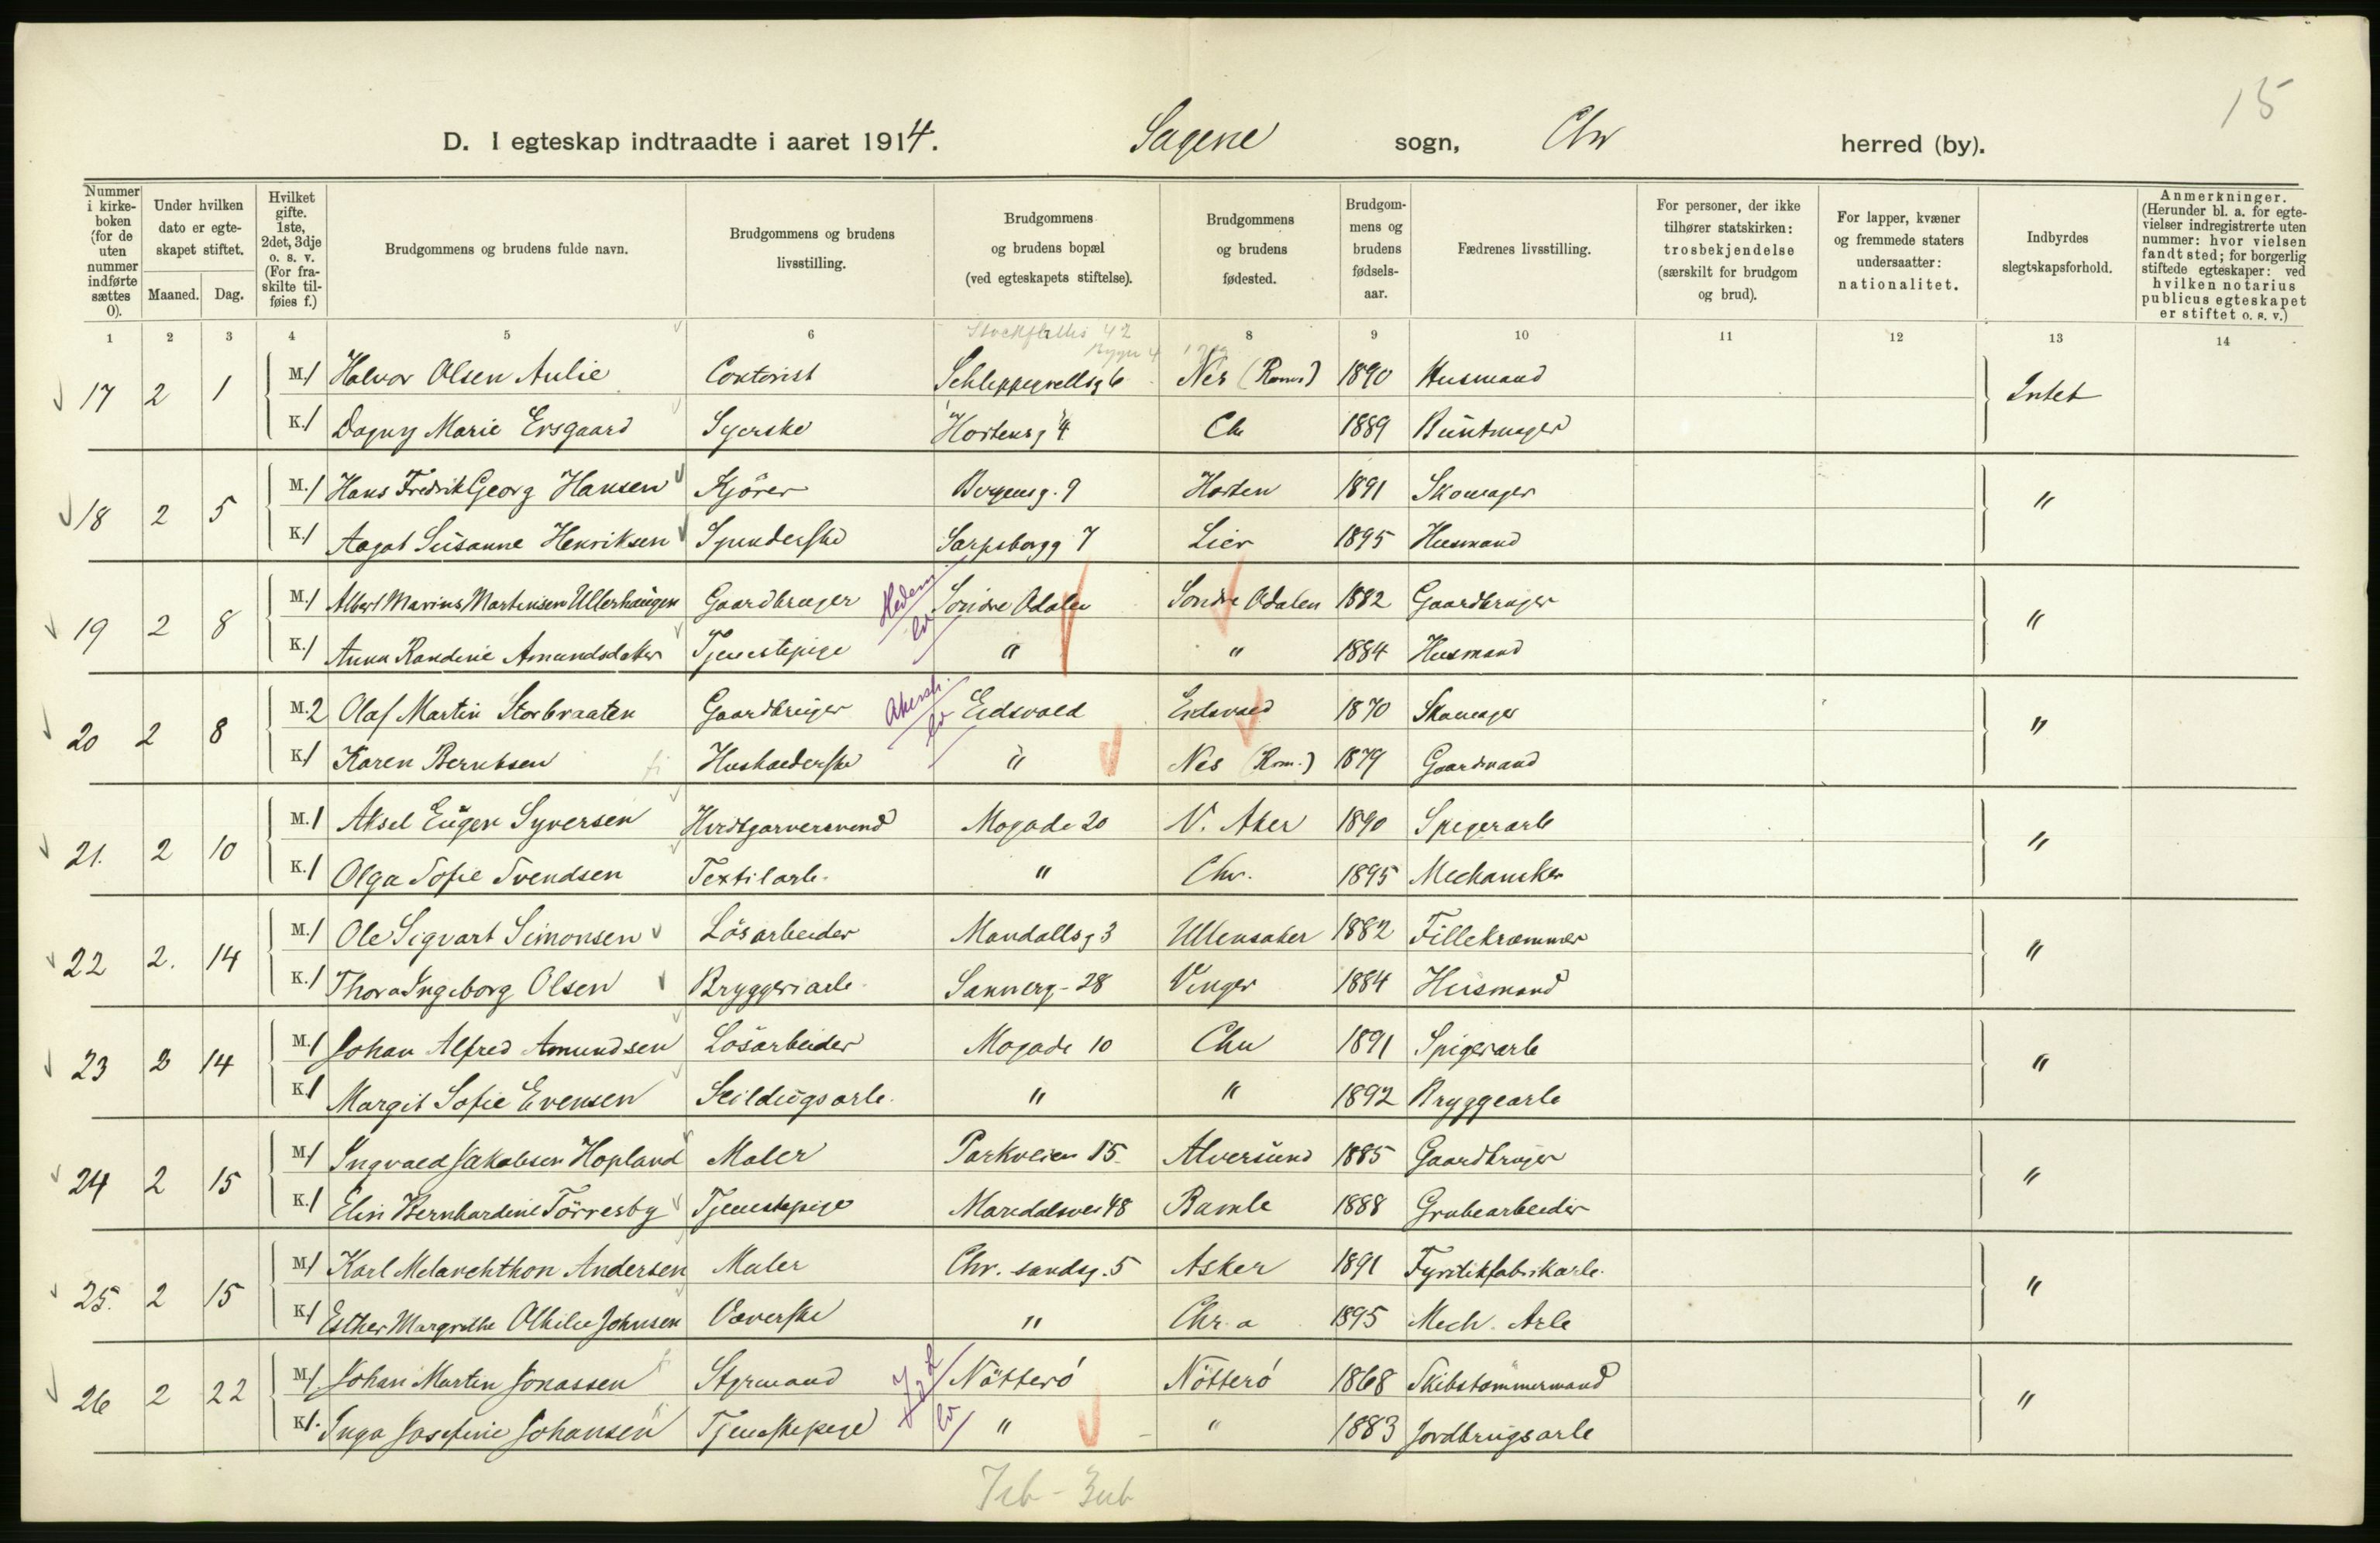 15
D. I egteskap indtraadte i aaret 1914. Sagene sogn, Chr herred (by).
Nummer i kirke-boken (for de uten nummer indførte sættes 0). Under hvilken dato er egte-skapet stiftet. Maaned. Dag. Hvilket gifte. 1ste, 2det, 3dje o. s. v. (For fra-skilte til-føies f.) Brudgommens og brudens fulde navn. Brudgommens og brudens livsstilling. Brudgommens og brudens bopæl (ved egteskapets stiftelse). Brudgommens og brudens fødested. Brudgom-mens og brudens fødsels-aar. Fædrenes livsstilling. For personer, der ikke tilhører statskirken: trosbekjendelse (særskilt for brudgom og brud). For lapper, kvæner og fremmede staters undersaatter: nationalitet. Indbyrdes slegtskapsforhold. Anmerkninger. (Herunder bl. a. for egte-vielser indregistrerte uten nummer: hvor vielsen fandt sted; for borgerlig stiftede egteskaper: ved hvilken notarius publicus egteskapet er stiftet o. s. v.)
1 2 3 4 5 6 8 9 10 11 12 13 14
17 2 1 M. 1 Halvor Olsen Aulie Contorist Schleppegrellsg 6 Nes (Rome) 1890 Husmand Intet
K. 1 Dagny Marie Ersgaard Syerske Hortensg 4 Chr 1889 Buntmager
18 2 5 M. 1 Hans Fredrik Georg Hansen Kjörer Bergensg. 9 Horten 1891 Skomager "
K. 1 Aagot Susanne Henriksen Spinderske Sarpsborgg 7 Lier 1895 Husmand
19 2 8 M. 1 Albert Marius Martinsen Ullerhaugen Gaardbruger Hedem. Söndre Odalen Söndre Odalen 1882 Gaardbruger "
K. 1 Anna Randine Amundsdatter Tjenestepige " " 1884 Husmand
20 2 8 M. 2 Olaf Martin Storbraaten Gaardbruger Akersh. Eidsvold Eidsvold 1870 Skomager "
K. 1 Karen Berntsen Husholderske " Nes (Rom.) 1879 Gaardmand
21. 2 10 M. 1 Aksel Eugen Syversen Hvidtgarversvend Mogade 20 V. Aker 1890 Spigerarb "
K. 1 Olga Sofie Svendsen Textilarb. " Chr. 1895 Mechaniker
22 2. 14 M. 1 Ole Sigvart Simonsen Lösarbeider Mandallsg 3 Ullensaker 1882 Fillekræmmer "
K. 1 Thora Ingeborg Olsen Bryggeriarb. Sannerg- 28 Vinger 1884 Husmand
23 2 14 M. 1 Johan Alfred Amundsen Lösarbeider Mogade 10 Chr 1891 Spigerarb "
K. 1 Margit Sofie Evensen Seildugsarb. " " 1892 Bryggearb
24 2 15 M. 1 Ingvald Jakobsen Hopland Maler Parkveien 15 Alversund 1885 Gaardbruger "
K. 1 Elin Bernhardine Törresby Tjenestepige Maridalsvei 48 Bamle 1888 Grubearbeider
25. 2 15 M. 1 Karl Melanchthon Andersen Maler Chr. sandsg. 5 Asker 1891 Fyrstikfabrikarb. "
K. 1 Esther Margrethe Othilie Johnsen Væverske " Chr. a 1895 Mech. Arb
26 2 22 M. 1 Johan Martin Jonassen Styrmand Nötterö Nötterö 1868 Skibstömmermand "
K. 1. Inga Josefine Johansen Tjenestepige " " 1883 Jordbrugsarb